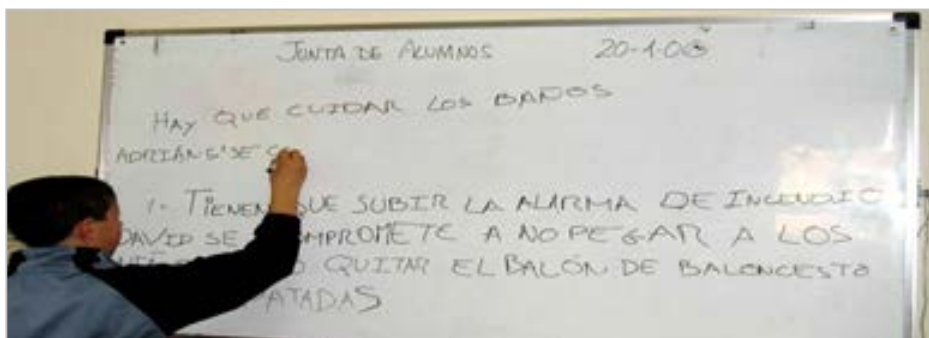 JUNTA DE ALUMNOS 20-1-06
HAY QUE CUIDAR LOS BAÑOS
ADRIÁN G. SE
1- TIENEN QUE SUBIR LA ALARMA DE INCENDIO
DAVID SE COMPROMETE A NO PEGAR A LOS
QUITAR EL BALÓN DE BALONCESTO
PATADAS